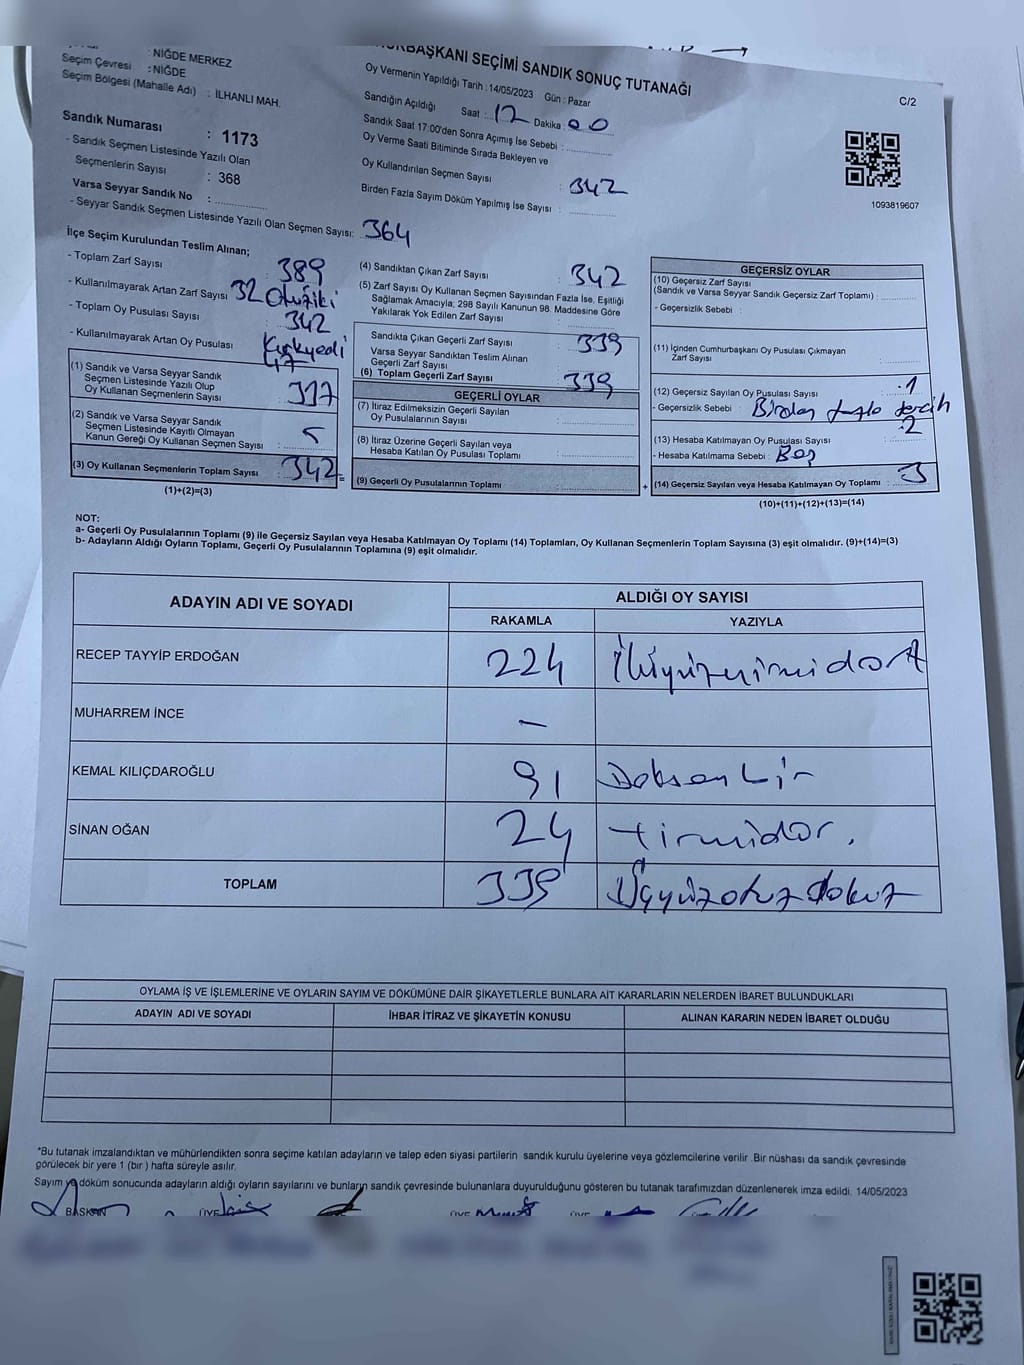 NİĞDE MERKEZ
Seçim Çevresi : NİĞDE
Seçim Bölgesi (Mahalle Adı) : İLHANLI MAH.
Sandık Numarası : 1173
- Sandık Seçmen Listesinde Yazılı Olan
Seçmenlerin Sayısı : 368
Varsa Seyyar Sandık No :
- Seyyar Sandık Seçmen Listesinde Yazılı Olan Seçmen Sayısı: 364
BAŞKANI SEÇİMİ SANDIK SONUÇ TUTANAĞI
C/2
Oy Vermenin Yapıldığı Tarih : 14/05/2023 Gün : Pazar
Sandığın Açıldığı Saat : 17 Dakika : 00
Sandık Saat 17:00'den Sonra Açımış İse Sebebi :
Oy Verme Saati Bitiminde Sırada Bekleyen ve
Oy Kullandırılan Seçmen Sayısı : 342
Birden Fazla Sayım Döküm Yapılmış İse Sayısı :
1093819607
İlçe Seçim Kurulundan Teslim Alınan;
- Toplam Zarf Sayısı : 389
- Kullanılmayarak Artan Zarf Sayısı 32 Otuziki
- Toplam Oy Pusulası Sayısı : 342
- Kullanılmayarak Artan Oy Pusulası Kırkyedi
47
(1) Sandık ve Varsa Seyyar Sandık
Seçmen Listesinde Yazılı Olup
Oy Kullanan Seçmenlerin Sayısı : 337
(2) Sandık ve Varsa Seyyar Sandık
Seçmen Listesinde Kayıtlı Olmayan
Kanun Gereği Oy Kullanan Seçmen Sayısı : 5
(3) Oy Kullanan Seçmenlerin Toplam Sayısı : 342 =
(1)+(2)=(3)
(4) Sandıktan Çıkan Zarf Sayısı : 342
(5) Zarf Sayısı Oy Kullanan Seçmen Sayısından Fazla İse, Eşitliği
Sağlamak Amacıyla; 298 Sayılı Kanunun 98. Maddesine Göre
Yakılarak Yok Edilen Zarf Sayısı :
Sandıkta Çıkan Geçerli Zarf Sayısı : 339
Varsa Seyyar Sandıktan Teslim Alınan
Geçerli Zarf Sayısı :
(6) Toplam Geçerli Zarf Sayısı : 339
GEÇERLİ OYLAR
(7) İtiraz Edilmeksizin Geçerli Sayılan
Oy Pusulalarının Sayısı :
(8) İtiraz Üzerine Geçerli Sayılan veya
Hesaba Katılan Oy Pusulası Toplamı :
(9) Geçerli Oy Pusulalarının Toplamı : +
GEÇERSİZ OYLAR
(10) Geçersiz Zarf Sayısı
(Sandık ve Varsa Seyyar Sandık Geçersiz Zarf Toplamı) :
- Geçersizlik Sebebi :
(11) İçinden Cumhurbaşkanı Oy Pusulası Çıkmayan
Zarf Sayısı :
(12) Geçersiz Sayılan Oy Pusulası Sayısı : 1
- Geçersizlik Sebebi : Birden fazla tercih
(13) Hesaba Katılmayan Oy Pusulası Sayısı : 2
- Hesaba Katılmama Sebebi : Boş
(14) Geçersiz Sayılan veya Hesaba Katılmayan Oy Toplamı : 3
(10)+(11)+(12)+(13)=(14)
NOT:
a- Geçerli Oy Pusulalarının Toplamı (9) ile Geçersiz Sayılan veya Hesaba Katılmayan Oy Toplamı (14) Toplamları, Oy Kullanan Seçmenlerin Toplam Sayısına (3) eşit olmalıdır. (9)+(14)=(3)
b- Adayların Aldığı Oyların Toplamı, Geçerli Oy Pusulalarının Toplamına (9) eşit olmalıdır.
ADAYIN ADI VE SOYADI
ALDIĞI OY SAYISI
RAKAMLA YAZIYLA
RECEP TAYYİP ERDOĞAN 224 İkiyüzyirmidört
MUHARREM İNCE —
KEMAL KILIÇDAROĞLU 91 Doksan bir
SİNAN OĞAN 24 Yirmidör.
TOPLAM 339 Üçyüzotuzdokuz
OYLAMA İŞ VE İŞLEMLERİNE VE OYLARIN SAYIM VE DÖKÜMÜNE DAİR ŞİKAYETLERLE BUNLARA AİT KARARLARIN NELERDEN İBARET BULUNDUKLARI
ADAYIN ADI VE SOYADI İHBAR İTİRAZ VE ŞİKAYETİN KONUSU ALINAN KARARIN NEDEN İBARET OLDUĞU
*Bu tutanak imzalandıktan ve mühürlendikten sonra seçime katılan adayların ve talep eden siyasi partilerin sandık kurulu üyelerine veya gözlemcilerine verilir .Bir nüshası da sandık çevresinde
görülecek bir yere 1 (bir ) hafta süreyle asılır.
Sayım ve döküm sonucunda adayların aldığı oyların sayılarını ve bunların sandık çevresinde bulunanlara duyurulduğunu gösteren bu tutanak tarafımızdan düzenlenerek imza edildi. 14/05/2023
BAŞKAN ÜYE ÜYE ÜYE